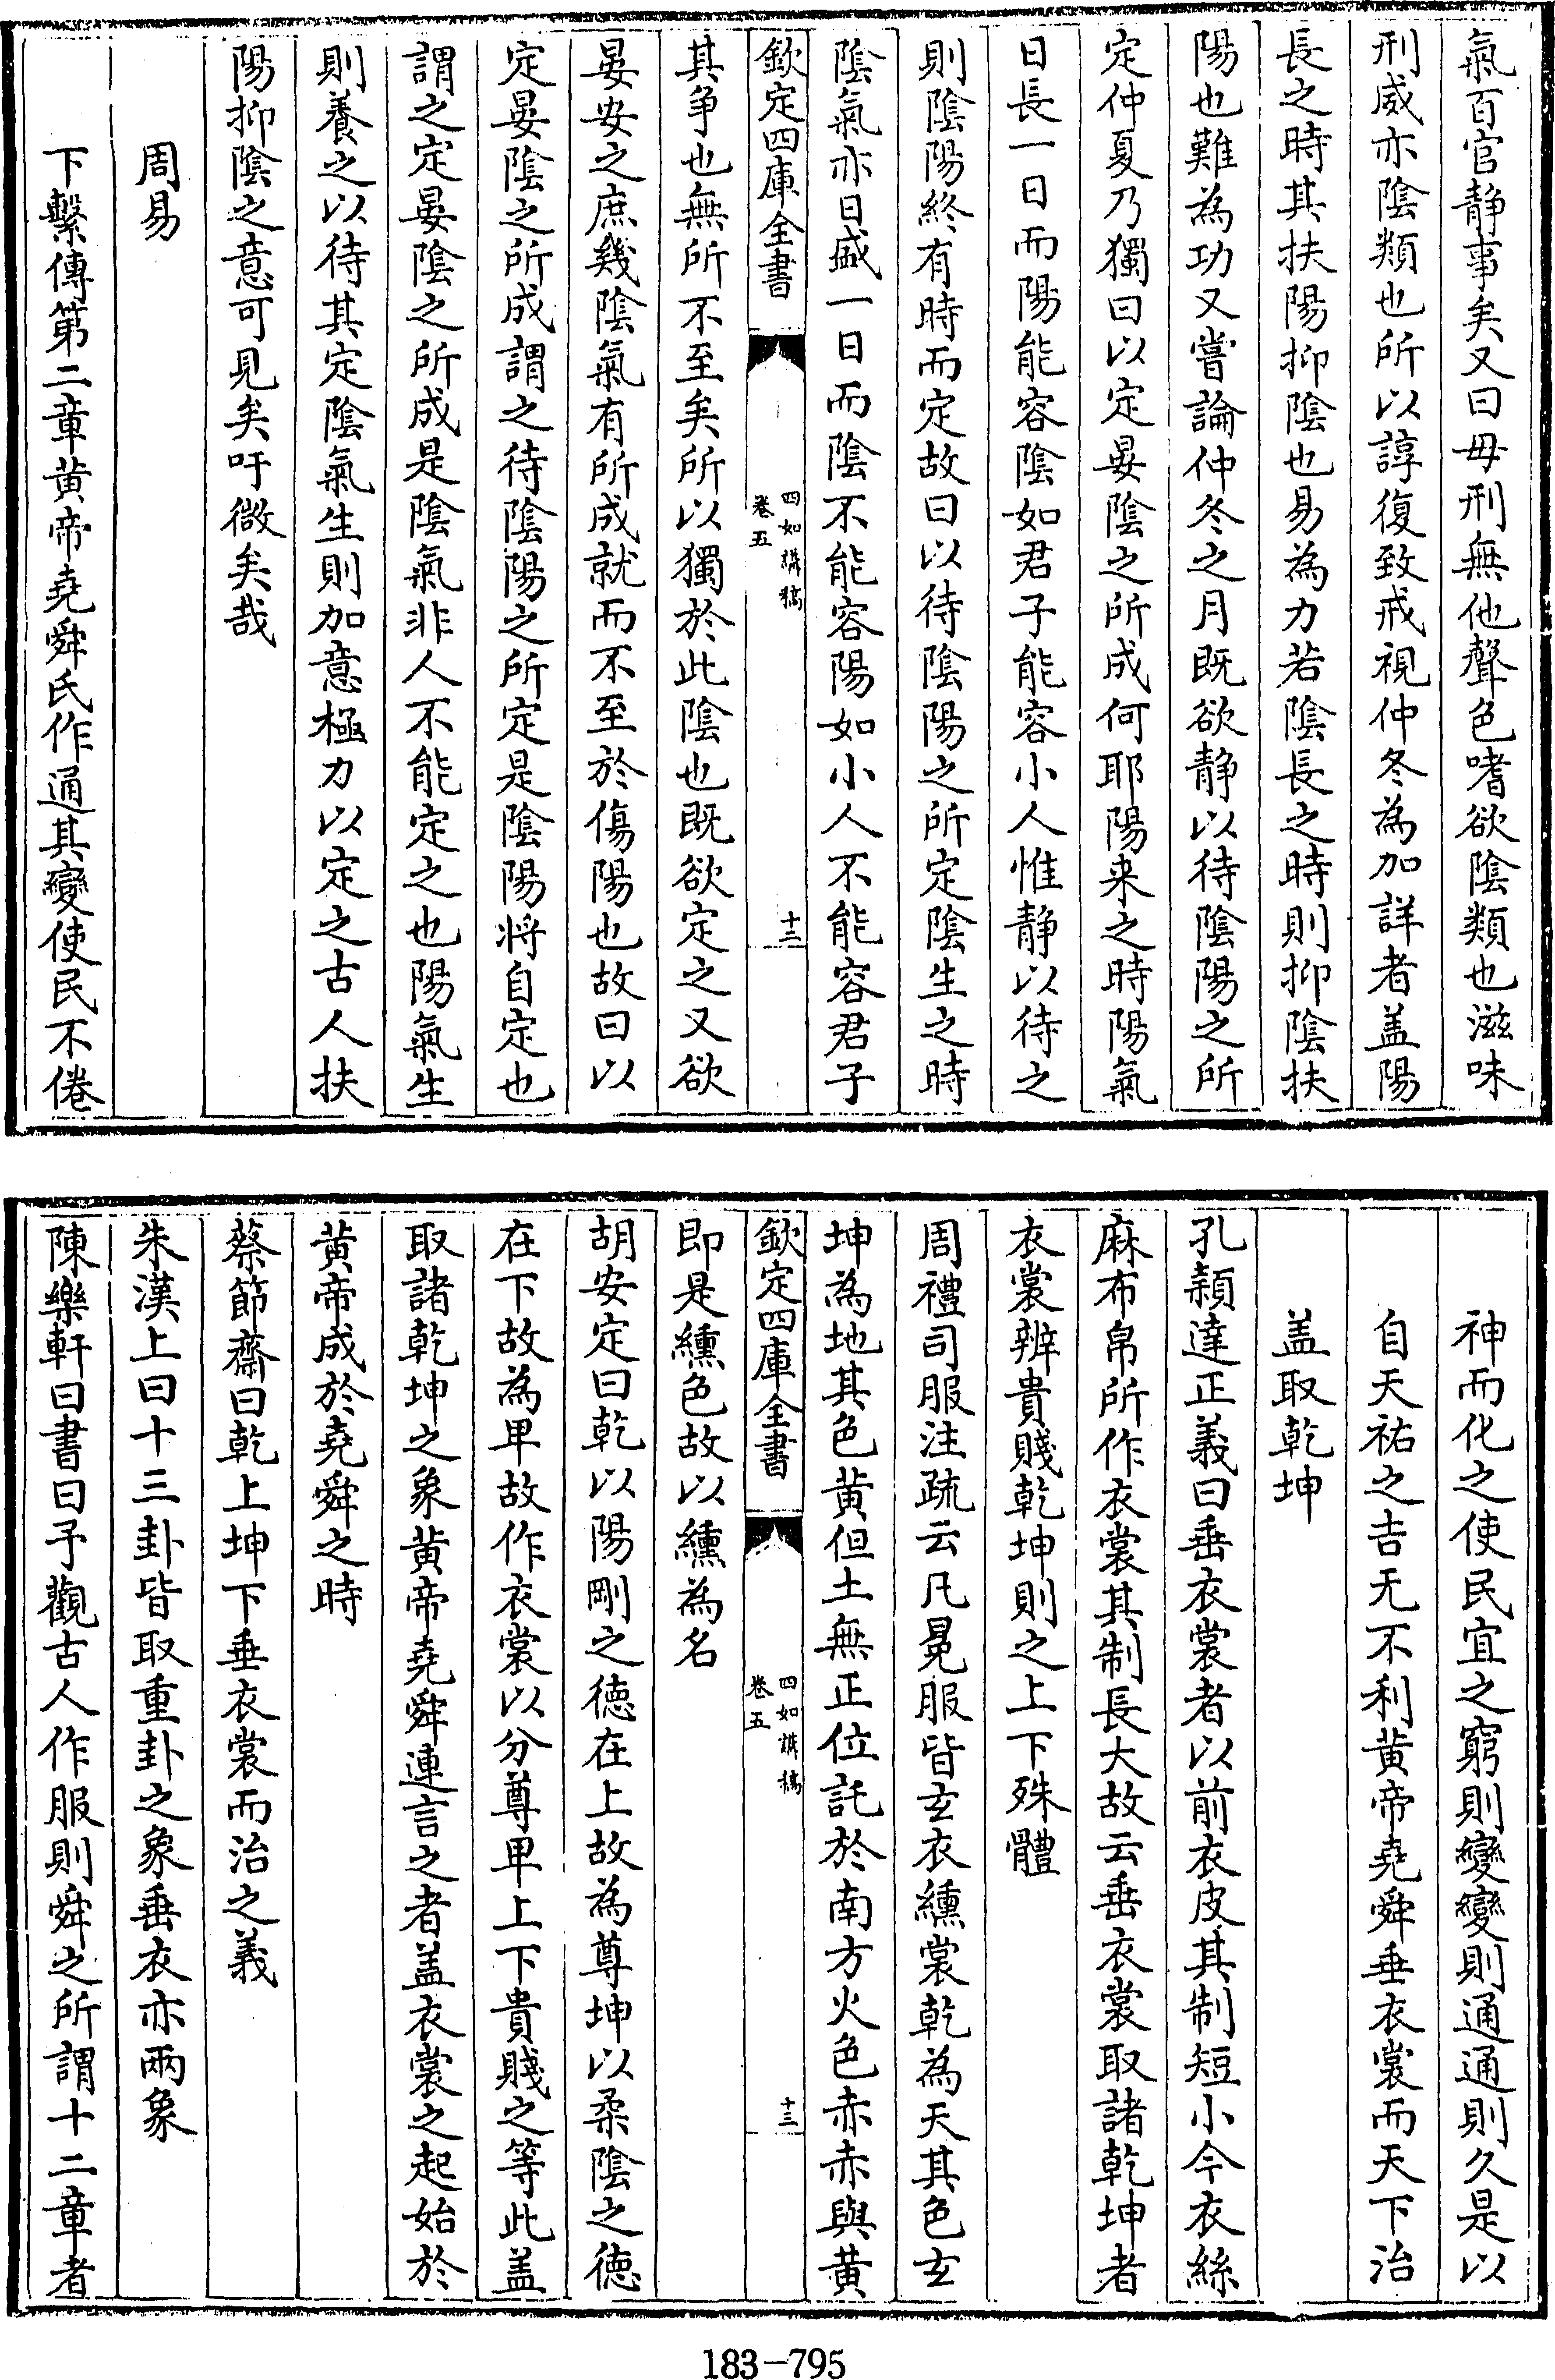 氣百官静事矣又曰毋刑無他聲色嗜欲陰類也滋味
刑威亦陰類也所以諄復致戒視仲冬為加詳者盖陽
長之時其扶陽抑陰也易為力若陰長之時則抑陰扶
陽也難為功又嘗論仲冬之月既欲静以待陰陽之所
定仲夏乃獨曰以定晏陰之所成何耶陽来之時陽氣
日長一日而陽能容陰如君子能容小人惟静以待之
則陰陽終有時而定故曰以待陰陽之所定陰生之時
陰氣亦日盛一日而陰不能容陽如小人不能容君子
欽定四庫全書
四如講稿
卷五
十二
其争也無所不至矣所以獨於此陰也既欲定之又欲
晏安之庶幾陰氣有所成就而不至於傷陽也故曰以
定晏陰之所成謂之待陰陽之所定是陰陽将自定也
謂之定晏陰之所成是陰氣非人不能定之也陽氣生
則養之以待其定陰氣生則加意極力以定之古人扶
陽抑陰之意可見矣吁微矣哉
周易
下繫傳第二章黄帝堯舜氏作通其變使民不倦
神而化之使民宜之窮則變變則通通則久是以
自天祐之吉无不利黄帝堯舜垂衣裳而天下治
盖取乾坤
孔穎達正義曰垂衣裳者以前衣皮其制短小今衣絲
麻布帛所作衣裳其制長大故云垂衣裳取諸乾坤者
衣裳辨貴賤乾坤則之上下殊體
周禮司服注疏云凡冕服皆玄衣纁裳乾為天其色玄
坤為地其色黄但土無正位託於南方火色赤赤與黄
欽定四庫全書
四如講稿
卷五
十三
即是纁色故以纁為名
胡安定曰乾以陽剛之徳在上故為尊坤以柔陰之徳
在下故為卑故作衣裳以分尊卑上下貴賤之等此盖
取諸乾坤之象黄帝堯舜連言之者盖衣裳之起始於
黄帝成於堯舜之時
蔡節齋曰乾上坤下垂衣裳而治之義
朱漢上曰十三卦皆取重卦之象垂衣亦兩象
陳樂軒曰書曰予觀古人作服則舜之所謂十二章者
183-795